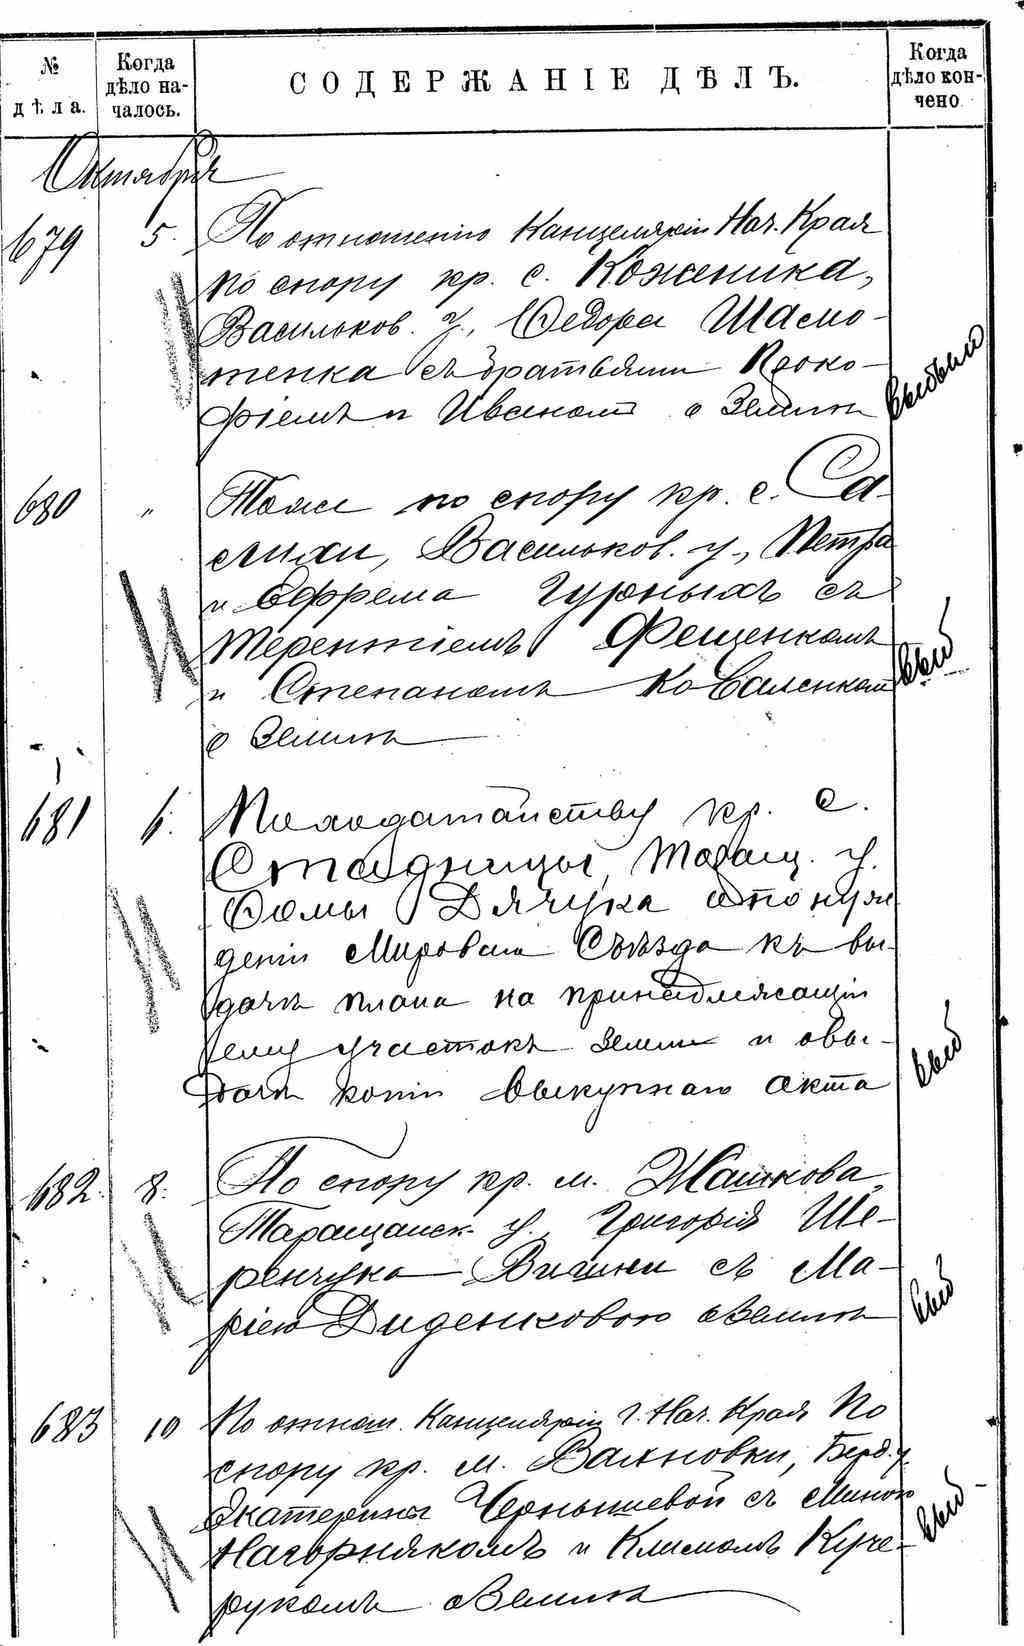 № дѣла.
Когда дѣло на-
чалось.
СОДЕРЖАНІЕ ДѢЛЪ.
Когда дѣло кон-
чено
Октября
679 5. По отношенію Канцеляріи Нач. Края
по спору кр. с. Коженика,
Васильков. у., Ѳедора Шамо-
тенка съ братьями Проко-
фіемъ и Иваномъ о землѣ
выбыло
680 " Тоже по спору кр. с. Са-
лихи, Васильков. у., Петра
и Ефрема Гурныхъ съ
Терентіемъ Фещенкомъ
и Степаномъ Коваленком
о землѣ
выб
681 6. По ходатайству кр. с.
Стадницы, Таращ. у.
Ѳомы Дячука о понуж
деніи Мироваго Съѣзда къ вы-
дачѣ плана на принадлежащій
ему участокъ земли и о вы-
дачѣ копіи выкупнаго акта
выб
682. 8. По спору кр. м. Жашкова,
Таращанск. у., Григорія Ше-
ренчука съ Ма-
ріею Диденковою о землѣ
выб
683 10 По отнош. Канцеляріи Г. Нач. Края по
спору кр. м. Вахновки, Берд. у.
Екатерины Чернышевой съ
Нагорнякомъ и Климомъ Куче-
рукомъ о землѣ
выб